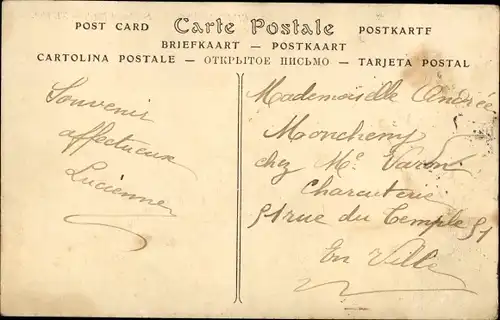 POST CARD Carte Postale POSTKARTE
BRIEFKAART — POSTKAART
CARTOLINA POSTALE — ОТКРЫТОЕ ПИСЬМО — TARJETA POSTAL
Souvenir
affectueux
Lucienne
Mademoiselle Andrée
Moncheny
chez Mr. Varin
Charcuterie
51 rue du Temple 51
En Ville